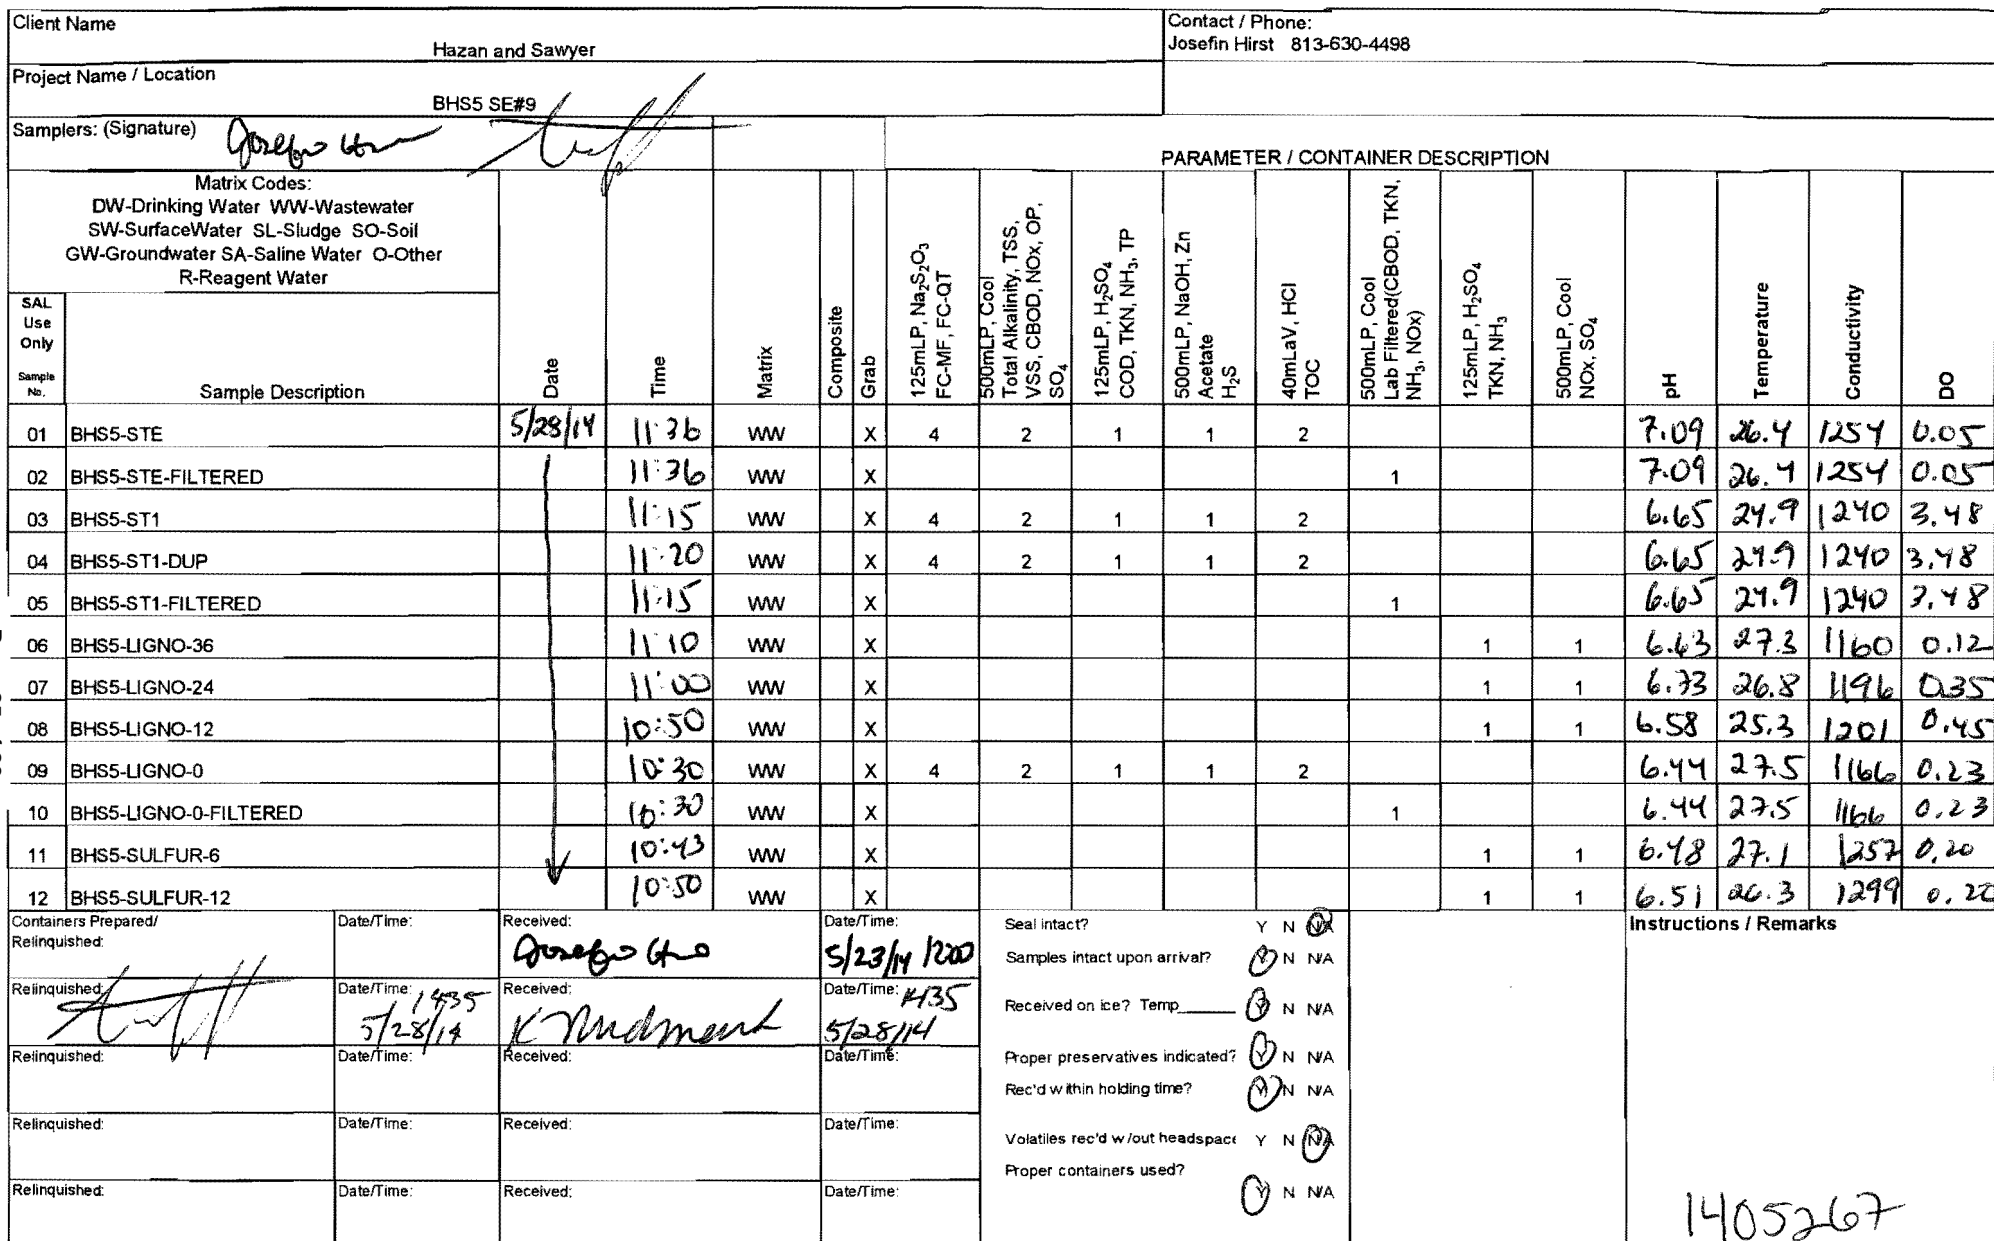 Client Name
Hazan and Sawyer
Contact / Phone:
Josefin Hirst 813-630-4498
Project Name / Location
BHS5 SE#9
Samplers: (Signature)
PARAMETER / CONTAINER DESCRIPTION
Matrix Codes:
DW-Drinking Water WW-Wastewater
SW-SurfaceWater SL-Sludge SO-Soil
GW-Groundwater SA-Saline Water O-Other
R-Reagent Water
SAL
Use
Only
Sample
No.
Sample Description
Date
Time
Matrix
Composite
Grab
125mLP, Na₂S₂O₃
FC-MF, FC-QT
500mLP, Cool
Total Alkalinity, TSS,
VSS, CBOD, NOx, OP,
SO₄
125mLP, H₂SO₄
COD, TKN, NH₃, TP
500mLP, NaOH, Zn
Acetate
H₂S
40mLaV, HCl
TOC
500mLP, Cool
Lab Filtered(CBOD, TKN,
NH₃, NOx)
125mLP, H₂SO₄
TKN, NH₃
500mLP, Cool
NOx, SO₄
pH
Temperature
Conductivity
DO
01 BHS5-STE 5/28/14 11:36 WW X 4 2 1 1 2 7.09 26.4 1254 0.05
02 BHS5-STE-FILTERED 11:36 WW X 1 7.09 26.4 1254 0.05
03 BHS5-ST1 11:15 WW X 4 2 1 1 2 6.65 24.9 1240 3.48
04 BHS5-ST1-DUP 11:20 WW X 4 2 1 1 2 6.65 24.9 1240 3.48
05 BHS5-ST1-FILTERED 11:15 WW X 1 6.65 24.9 1240 3.48
06 BHS5-LIGNO-36 11:10 WW X 1 1 6.63 27.3 1160 0.12
07 BHS5-LIGNO-24 11:00 WW X 1 1 6.73 26.8 1196 0.35
08 BHS5-LIGNO-12 10:50 WW X 1 1 6.58 25.3 1201 0.45
09 BHS5-LIGNO-0 10:30 WW X 4 2 1 1 2 6.44 27.5 1166 0.23
10 BHS5-LIGNO-0-FILTERED 10:30 WW X 1 6.44 27.5 1166 0.23
11 BHS5-SULFUR-6 10:43 WW X 1 1 6.48 27.1 1257 0.20
12 BHS5-SULFUR-12 10:50 WW X 1 1 6.51 26.3 1299 0.22
Containers Prepared/
Relinquished:
Date/Time:
Received:
Date/Time:
5/23/14 1200
Relinquished:
Date/Time: 1435
5/28/14
Received:
Date/Time: 1435
5/28/14
Relinquished:
Date/Time:
Received:
Date/Time:
Relinquished:
Date/Time:
Received:
Date/Time:
Relinquished:
Date/Time:
Received:
Date/Time:
Seal intact? Y N NA
Samples intact upon arrival? Y N NA
Received on ice? Temp Y N NA
Proper preservatives indicated? Y N NA
Rec'd within holding time? Y N NA
Volatiles rec'd w/out headspace Y N NA
Proper containers used?
Y N NA
Instructions / Remarks
1405267